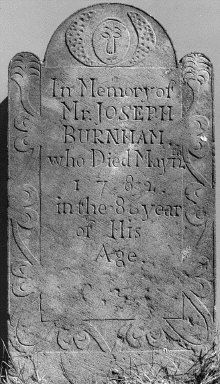 In Memory of
Mr. JOSEPH
BURNHAM
who Died May
1782
in the 8 year
of His
Age